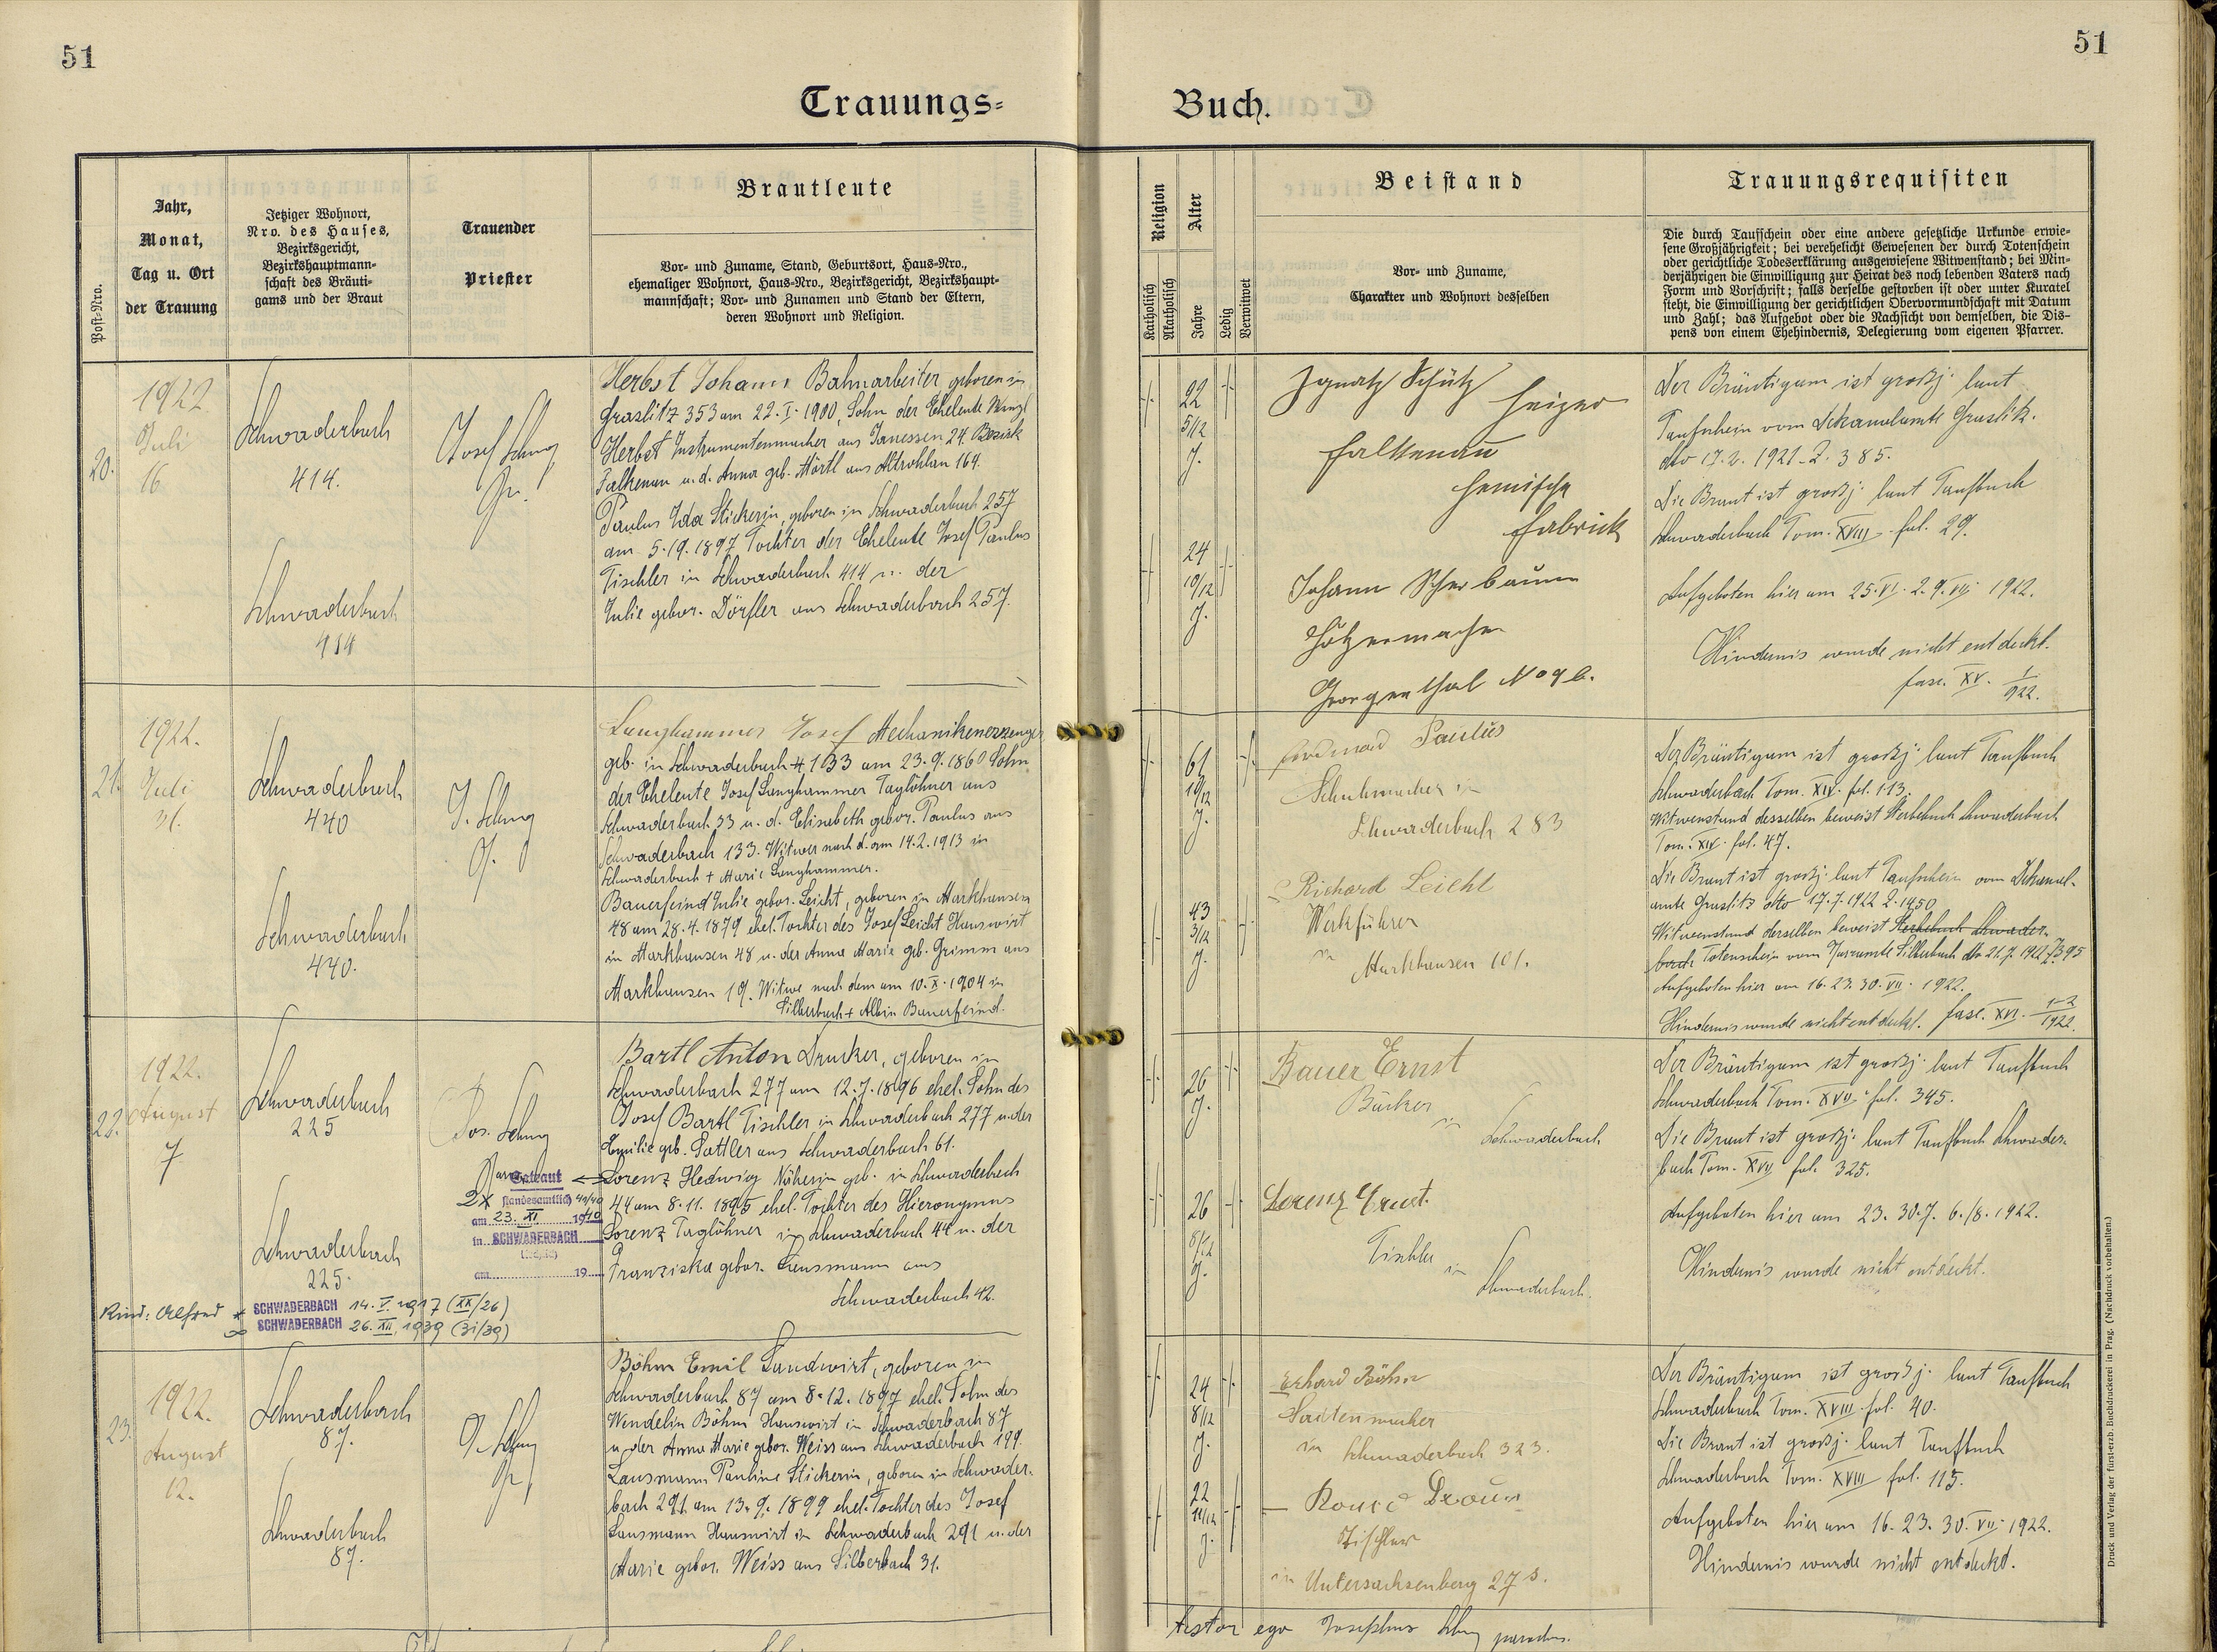 51
51
Trauungs=
Buch.
Post-Nro.
Jahr,
Monat,
Tag u. Ort
der Trauung
Jetziger Wohnort,
Nro. des Hauses,
Bezirksgericht,
Bezirkshauptmann-
schaft des Bräuti-
gams und der Braut
Trauender
Priester
Brautleute
Vor- und Zuname, Stand, Geburtsort, Haus-Nro.,
ehemaliger Wohnort, Haus-Nro., Bezirksgericht, Bezirkshaupt-
mannschaft; Vor- und Zunamen und Stand der Eltern,
deren Wohnort und Religion.
Religion
Katholisch
Akatholisch
Alter
Jahre
Ledig
Verwitwet
Beistand
Vor- und Zuname,
Charakter und Wohnort desselben
Trauungsrequisiten
Die durch Taufschein oder eine andere gesetzliche Urkunde erwie-
sene Großjährigkeit; bei verehelicht Gewesenen der durch Totenschein
oder gerichtliche Todeserklärung ausgewiesene Witwenstand; bei Min-
derjährigen die Einwilligung zur Heirat des noch lebenden Vaters nach
Form und Vorschrift; falls derselbe gestorben ist oder unter Kuratel
steht, die Einwilligung der gerichtlichen Obervormundschaft mit Datum
und Zahl; das Aufgebot oder die Nachsicht von demselben, die Dis-
pens von einem Ehehindernis, Delegierung vom eigenen Pfarrer.
20.
1922
Juli
16
Schwaderbach
414.
Schwaderbach
414
Josef
Herbst Johann Bahnarbeiter, geboren in
Graslitz 353 am 22. I. 1900, Sohn der Eheleute Wenzl
Herbst Instrumentenmacher aus Janessen 24. Bezirk
Falkenau u. d. Anna geb. Hörtl aus Altrohlau 164.
Paulus Ida Stickerin, geboren in Schwaderbach 257
am 5. 9. 1897 Tochter der Eheleute Josef Paulus
Tischler in Schwaderbach 414 u. der
Julie gebor. Dörfler aus Schwaderbach 257.
22
5/12
J.
24
10/12
J.
Ignatz Schütz
Heizer
Falkenau
Fabrick
Johann
Georgenthal No 96.
Der Bräutigam ist großj. laut
Taufschein vom Dekanalamte Graslitz.
dto 17. 2. 1921. Z. 385.
Die Braut ist großj. laut Taufbuch
Schwaderbach Tom. XVIII fol. 29.
Aufgeboten hier am 25. VI. 2. 9. VII. 1922.
Hindernis wurde nicht entdeckt.
fasc. XV. 1/922.
21.
1922.
Juli
31.
Schwaderbach
440
Schwaderbach
440.
J.
Langhammer Josef Mechanikenerzeuger
geb. in Schwaderbach 133 am 23. 9. 1860 Sohn
der Eheleute Josef Langhammer Taglöhner aus
Schwaderbach 33 u. d. Elisabeth gebor. Paulus aus
Schwaderbach 133. Witwer nach d. am 14. 2. 1913 in
Schwaderbach + Marie Langhammer.
Bauerfeind Julie gebor. Leicht, geboren in Markhausen
48 am 28. 4. 1879 ehel. Tochter des Josef Leicht Hauswirt
in Markhausen 48 u. der Anna Marie geb. Grimm aus
Markhausen 19. Witwe nach dem am 10. X. 1904 in
Silberbach + Albin Bauerfeind.
61
10/12
J.
43
3/12
J.
Paulus
Schuhmacher in
Schwaderbach 283
Richard Leicht
Werkführer
in
Markhausen 101.
Der Bräutigam ist großj. laut Taufbuch
Schwaderbach Tom. XIV. fol. 113.
Witwenstand desselben beweist Sterbebuch Schwaderbach
Tom. XIV fol. 47.
Die Braut ist großj. laut Taufschein vom Dekanal-
amte Graslitz dto 17. 7. 1922 Z. 1950
Witwenstand derselben beweist Sterbebuch Schwader-
bach Totenschein vom Pfarramte Silberbach dto 21. 7. 1922 Z. 395
Aufgeboten hier am 16. 23. 30. VII. 1922.
Hindernis wurde nicht entdeckt. fasc. XVI. 1-2/1922.
22.
1922.
August
7
Schwaderbach
225
Schwaderbach
225.
Jos.
Getraut
2x standesamtlich 40/40
am 23. XI 1940
in SCHWADERBACH
am 19
Bartl Anton Drucker, geboren in
Schwaderbach 277 am 12. 7. 1896 ehel. Sohn des
Josef Bartl Tischler in Schwaderbach 277 u. der
Emilie geb. Sattler aus Schwaderbach 61.
Lorenz Hedwig Näherin geb. in Schwaderbach
44 am 8. 11. 1895 ehel. Tochter des Hieronymus
Lorenz Taglöhner in Schwaderbach 44 u. der
Franziska gebor. Lausmann aus
Schwaderbach 42.
Kind: Alfred * SCHWADERBACH 14. V. 1917 (XX/26)
∞ SCHWADERBACH 26. XII. 1939 (31/39)
26
J.
26
8/12
J.
Bauer Ernst
Bäcker
in
Schwaderbach
Lorenz Ernst.
Tischler
in
Schwaderbach.
Der Bräutigam ist großj. laut Taufbuch
Schwaderbach Tom. XVII. fol. 345.
Die Braut ist großj. laut Taufbuch Schwader-
bach Tom. XVII fol. 325.
Aufgeboten hier am 23. 30. 7. 6./8. 1922.
Hindernis wurde nicht entdeckt.
23.
1922.
August
12.
Schwaderbach
87.
Schwaderbach
87.
Böhm Emil Landwirt, geboren in
Schwaderbach 87 am 8. 12. 1897 ehel. Sohn des
Wendelin Böhm Hauswirt in Schwaderbach 87
u. der Anna Marie gebor. Weiss aus Schwaderbach 199.
Lausmann Pauline Stickerin, geboren in Schwader-
bach 291 am 13. 9. 1899 ehel. Tochter des Josef
Lausmann Hauswirt in Schwaderbach 291 u. der
Marie gebor. Weiss aus Silberbach 31.
24
8/12
J.
22
11/12
J.
Erhard Böhm
Saitenmacher
in Schwaderbach 323.
Tischler
in Untersachsenberg 27
Der Bräutigam ist großj. laut Taufbuch
Schwaderbach Tom. XVIII. fol. 40.
Die Braut ist großj. laut Taufbuch
Schwaderbach Tom. XVIII fol. 115.
Aufgeboten hier am 16. 23. 30. VII. 1922.
Hindernis wurde nicht entdeckt.
Testor ego Josephus parochus.
Druck und Verlag der fürst-erzb. Buchdruckerei in Prag. (Nachdruck vorbehalten.)